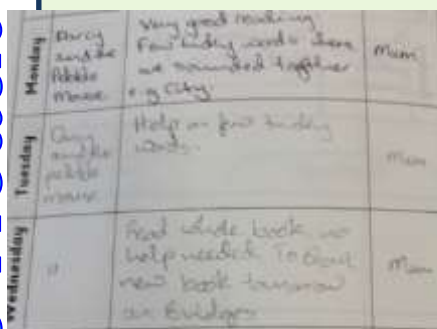 Monday
Darcy
and the
Pebble
Mouse.
Very good reading
Few tricky words where
we sounded together
e.g City.
Mum
Tuesday
and the
pebble
mouse
Help on few tricky
words.
Mum
Wednesday
"
Read whole book no
help needed. To start
new book tomorrow
on Bridges
Mum